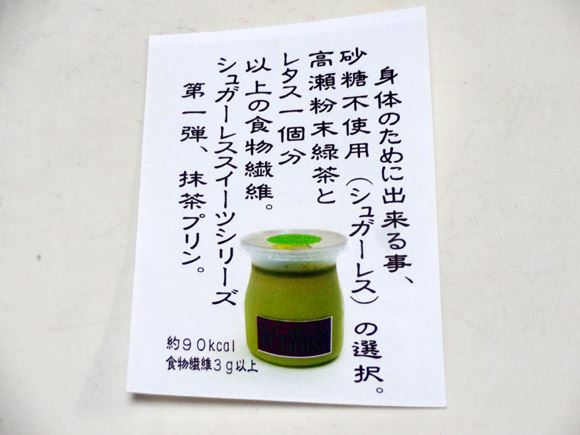 身体のために出来る事、
砂糖不使用（シュガーレス）の選択。
高瀬粉末緑茶と
レタス一個分
以上の食物繊維。
シュガーレススイーツシリーズ
第一弾、抹茶プリン。
約90kcal
食物繊維3g以上